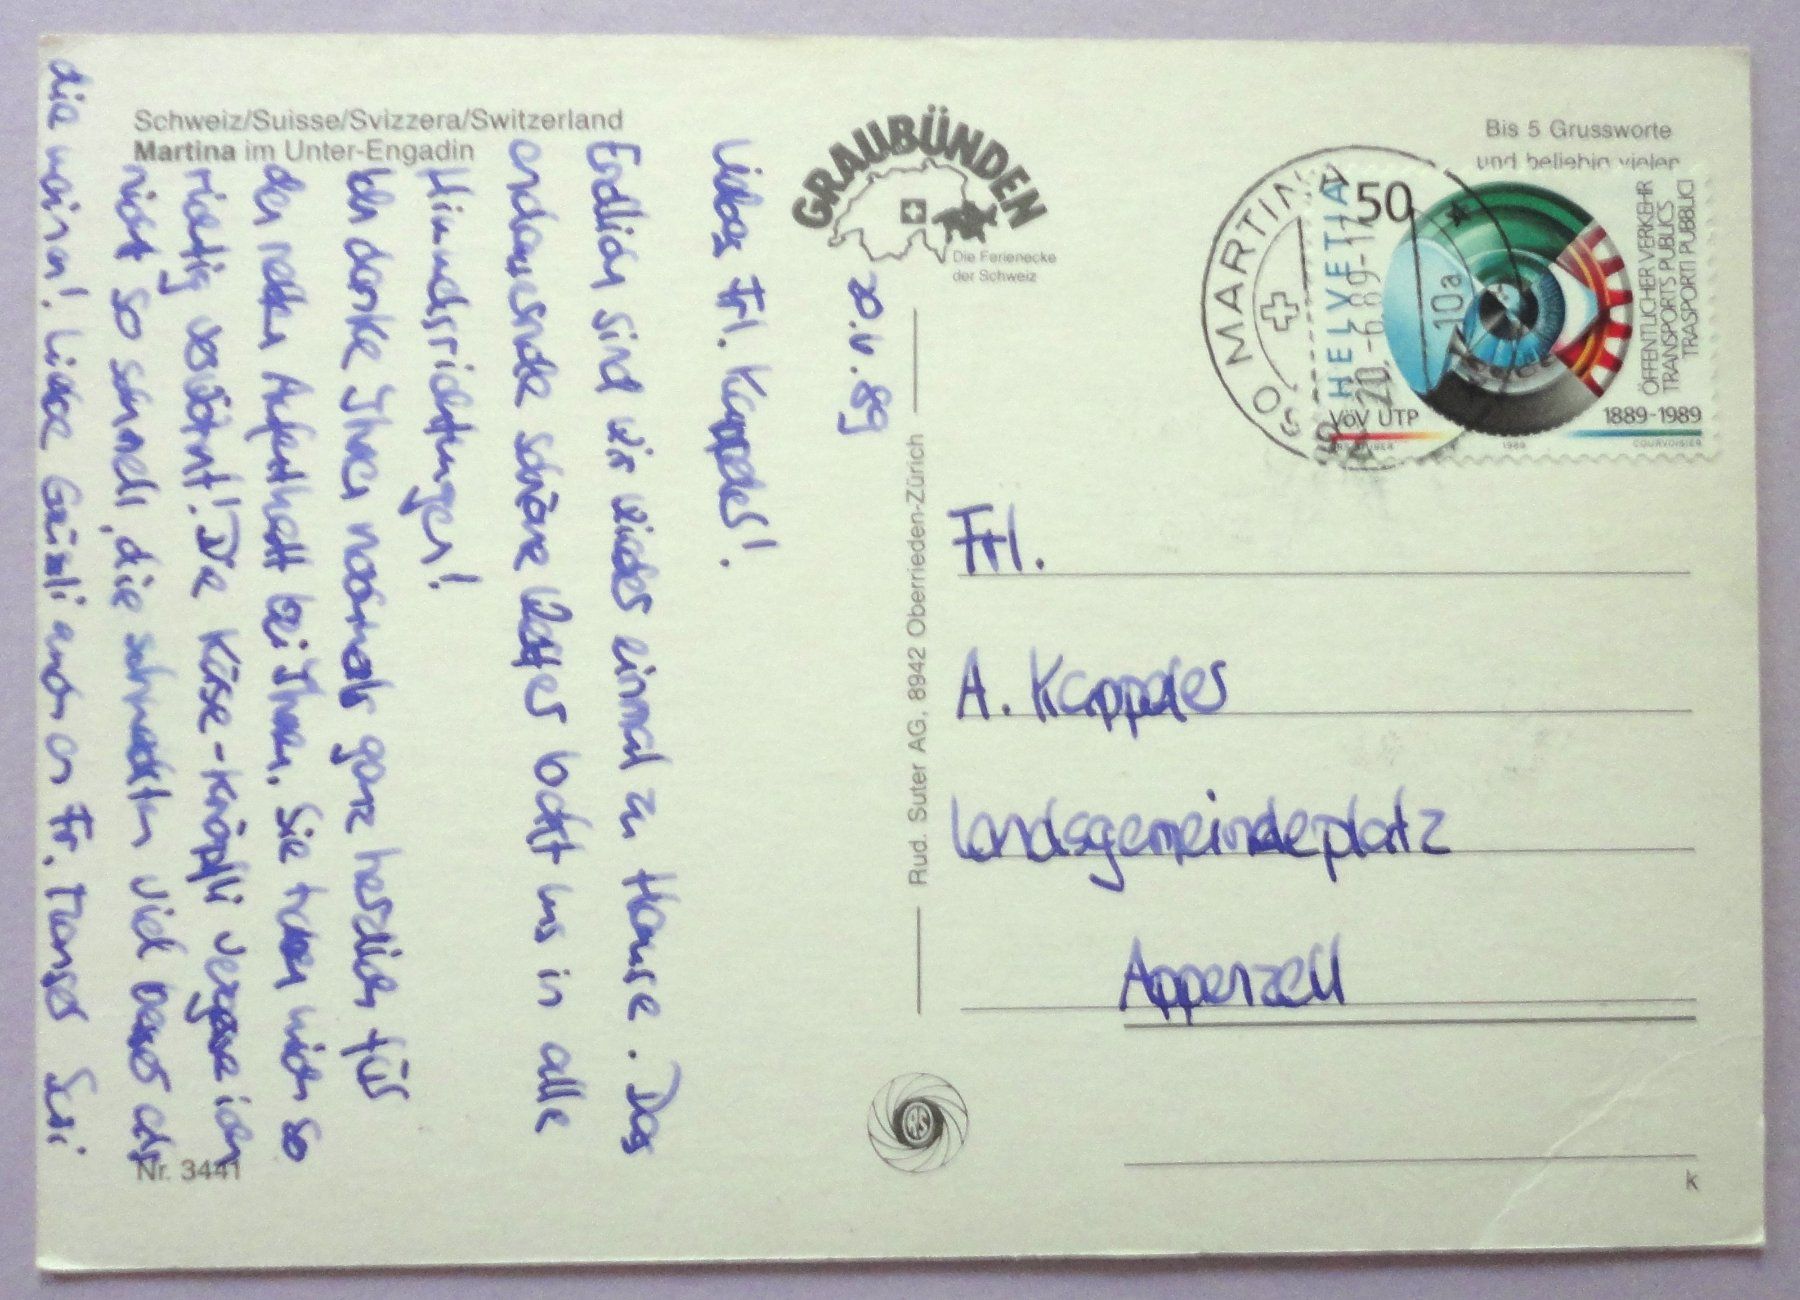 Schweiz/Suisse/Svizzera/Switzerland
Martina im Unter-Engadin
GRAUBÜNDEN
Die Ferienecke
der Schweiz
20.6.89
Liebes Frl. Kappeler!
Endlich sind wir wieder einmal zu Hause. Das
andauernde schöne Wetter lockt uns in alle
Himmelsrichtungen!
Ich danke Ihnen nochmals ganz herzlich für
den netten Aufenthalt bei Ihnen. Sie haben mich so
richtig verwöhnt! Die Käse-Knöpfli vergesse ich
nicht so schnell, die schmeckten viel besser als
die meinen! Liebe Grüssli auch an Fr. Manser Susi
Nr. 3441
Rud. Suter AG, 8942 Oberrieden-Zürich
RS
Bis 5 Grussworte
und beliebig vielen
MARTINA
20.-6.89-17
HELVETIA
50
10a
ÖFFENTLICHER VERKEHR
TRANSPORTS PUBLICS
TRASPORTI PUBBLICI
VöV UTP
1889-1989
1989
COURVOISIER
Frl.
A. Kappeler
Landsgemeindeplatz
Appenzell
k